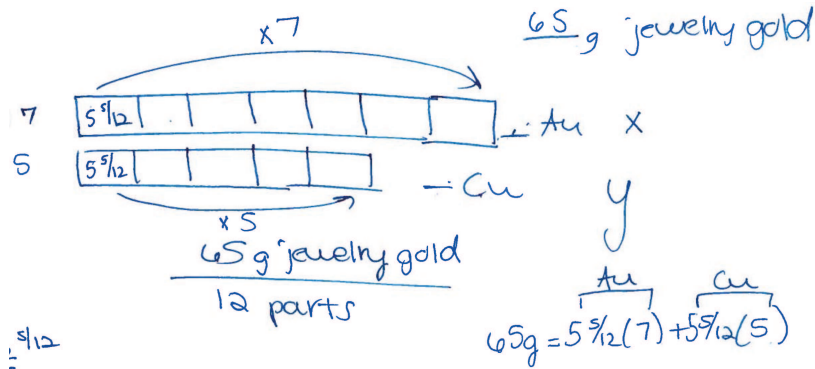 x7
65 g jewelry gold
7 5 5/12 — Au x
5 5 5/12 — Cu y
x5
65 g jewelry gold
12 parts
Au Cu
65g = 5 5/12(7) + 5 5/12(5)
5/12